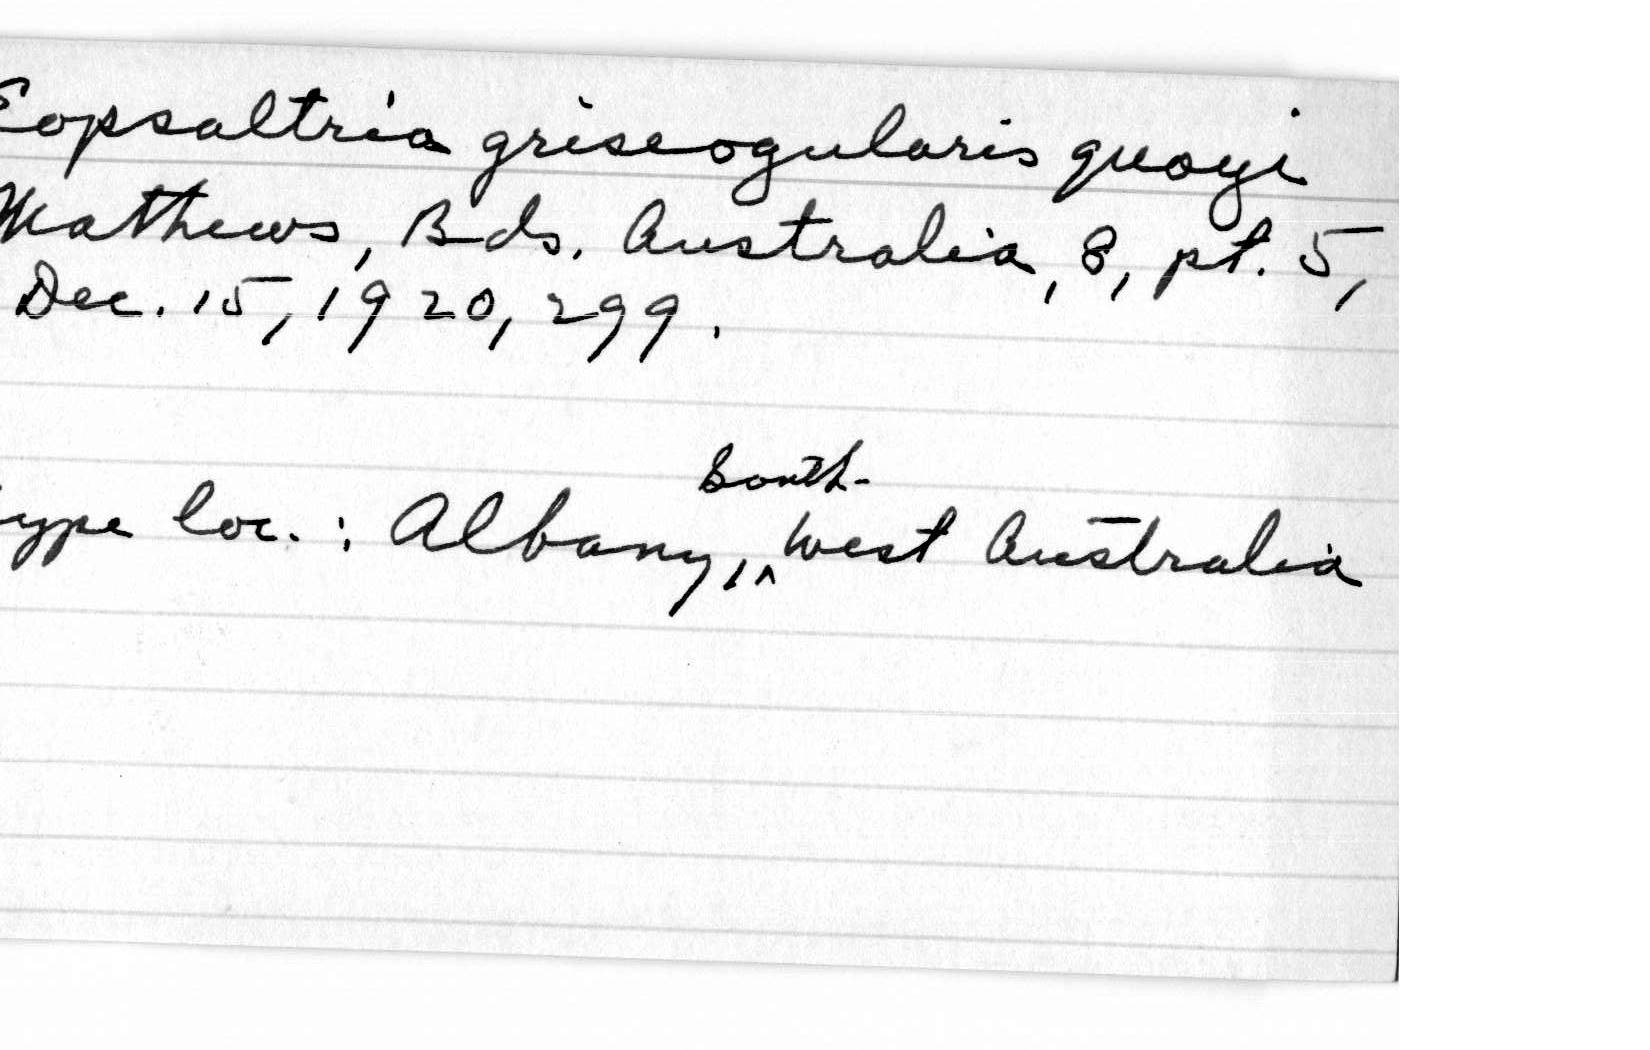 Eopsaltria griseogularis quoyi
Mathews, Bds. Australia, 8, pt. 5,
Dec. 15, 1920, 299.
ype loc. : Albany, South-
West Australia